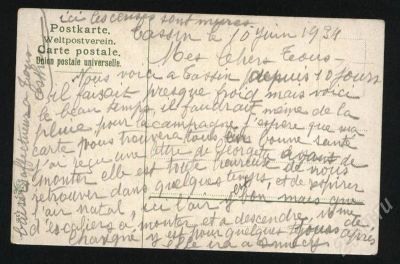 ici les cerises sont mures
Postkarte.
Weltpostverein.
Carte postale.
Union postale universelle.
Cassin le 10 Juin 1934
Mes chers Tous
Nous voici a Cassin depuis 10 jours
il faisait presque froid mais voici
le beau temps, il faudrait même de la
pluie pour la campagne j'espère que ma
carte vous trouvera tous en bonne santé
j'ai reçu une lettre de avant de
monter elle est toute heureuse de nous
retrouver dans quelques temps, et de respirer
l'air natal, ici l'air est bon mais que
d'escaliers a monter et a descendre,
y est pour quelques jours après
elle ira a